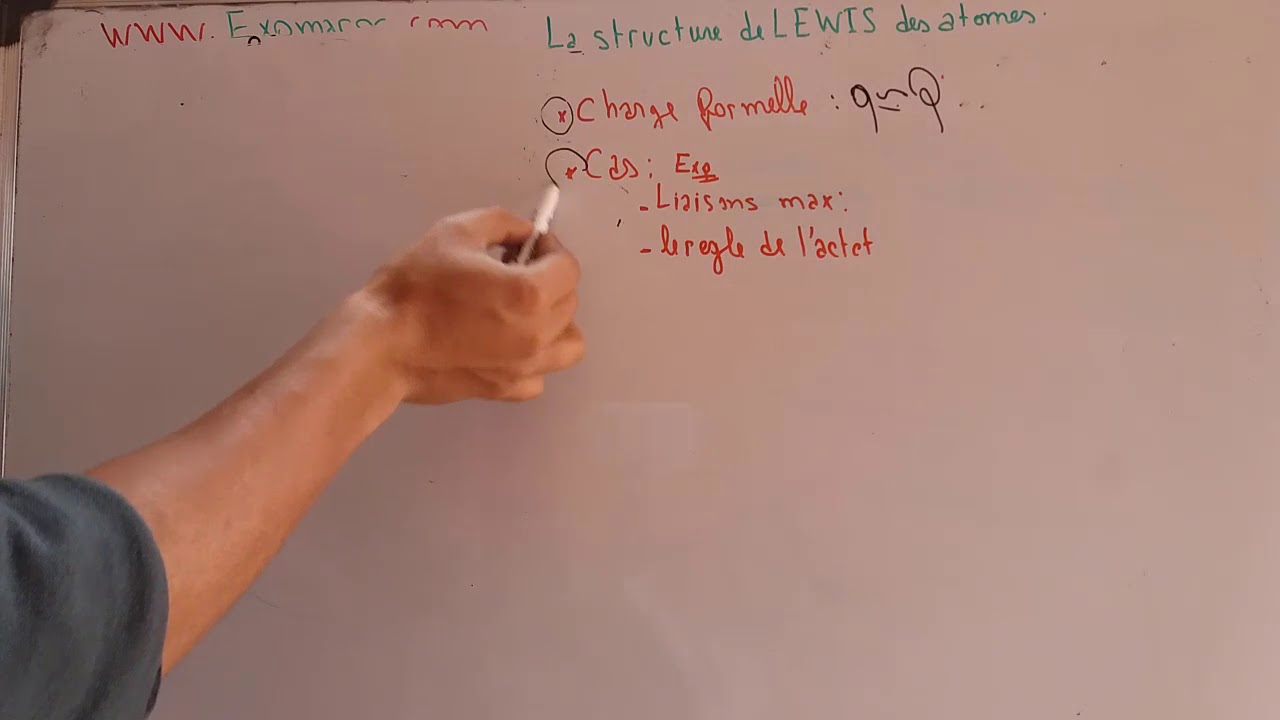 WWW. Exomaroc com
La structure de LEWIS des atomes.
* Charge formelle : q Q ...
* Cas : Exp
- Liaisons max :
- le regle de l'octet